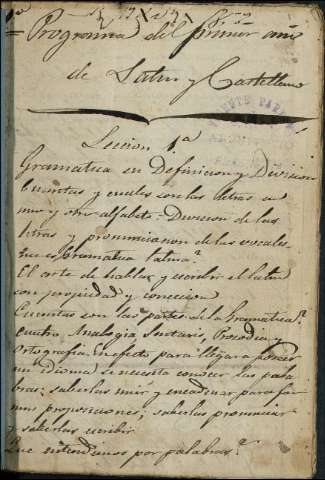 1ª Programa del primer año
de Latin y Castellano
Leccion 1ª
Gramatica su Definicion y Division
Cuantas y cuales son las letras en
uno y otro alfabeto - Division de las
letras y pronunciacion de las vocales.
que es Gramatica latina?
El arte de hablar y escribir el latin
con propiedad y correccion
Cuantas son las partes de la Gramatica?
Cuatro Analogia Sintasis, Prosodia y
Ortografia. En efecto para llegar a poseer
un Idioma se necesita conocer las pala
bras: saberlas unir y encadenar para for
mar proposiciones; saberlas pronunciar
y saberlas escribir
Que entendemos por palabras?